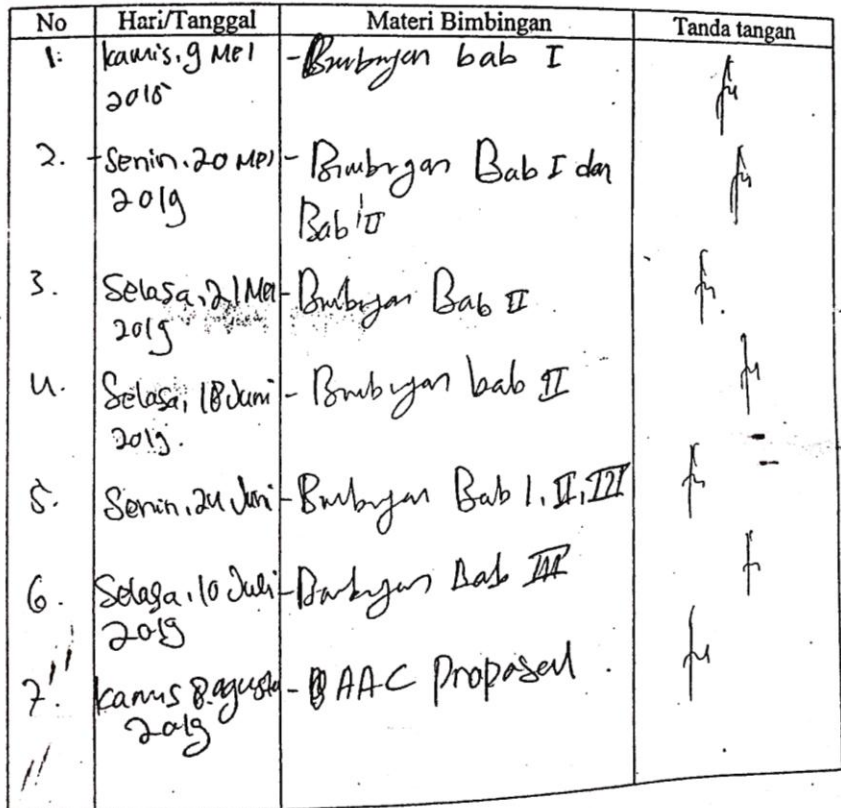 No Hari/Tanggal Materi Bimbingan Tanda tangan
1. kamis, 9 Mei - Bimbingan bab I
2019
2. Senin, 20 Mei - Bimbingan Bab I dan
2019 Bab II
3. Selasa, 21 Mei - Bimbingan Bab II
2019
4. Selasa, 18 Juni - Bimbingan bab II
2019.
5. Senin, 24 Juni - Bimbingan Bab I, II, III
6. Selasa, 10 Juli - Bimbingan Bab III
2019
7. kamis 8 agustus - AAC proposal
2019